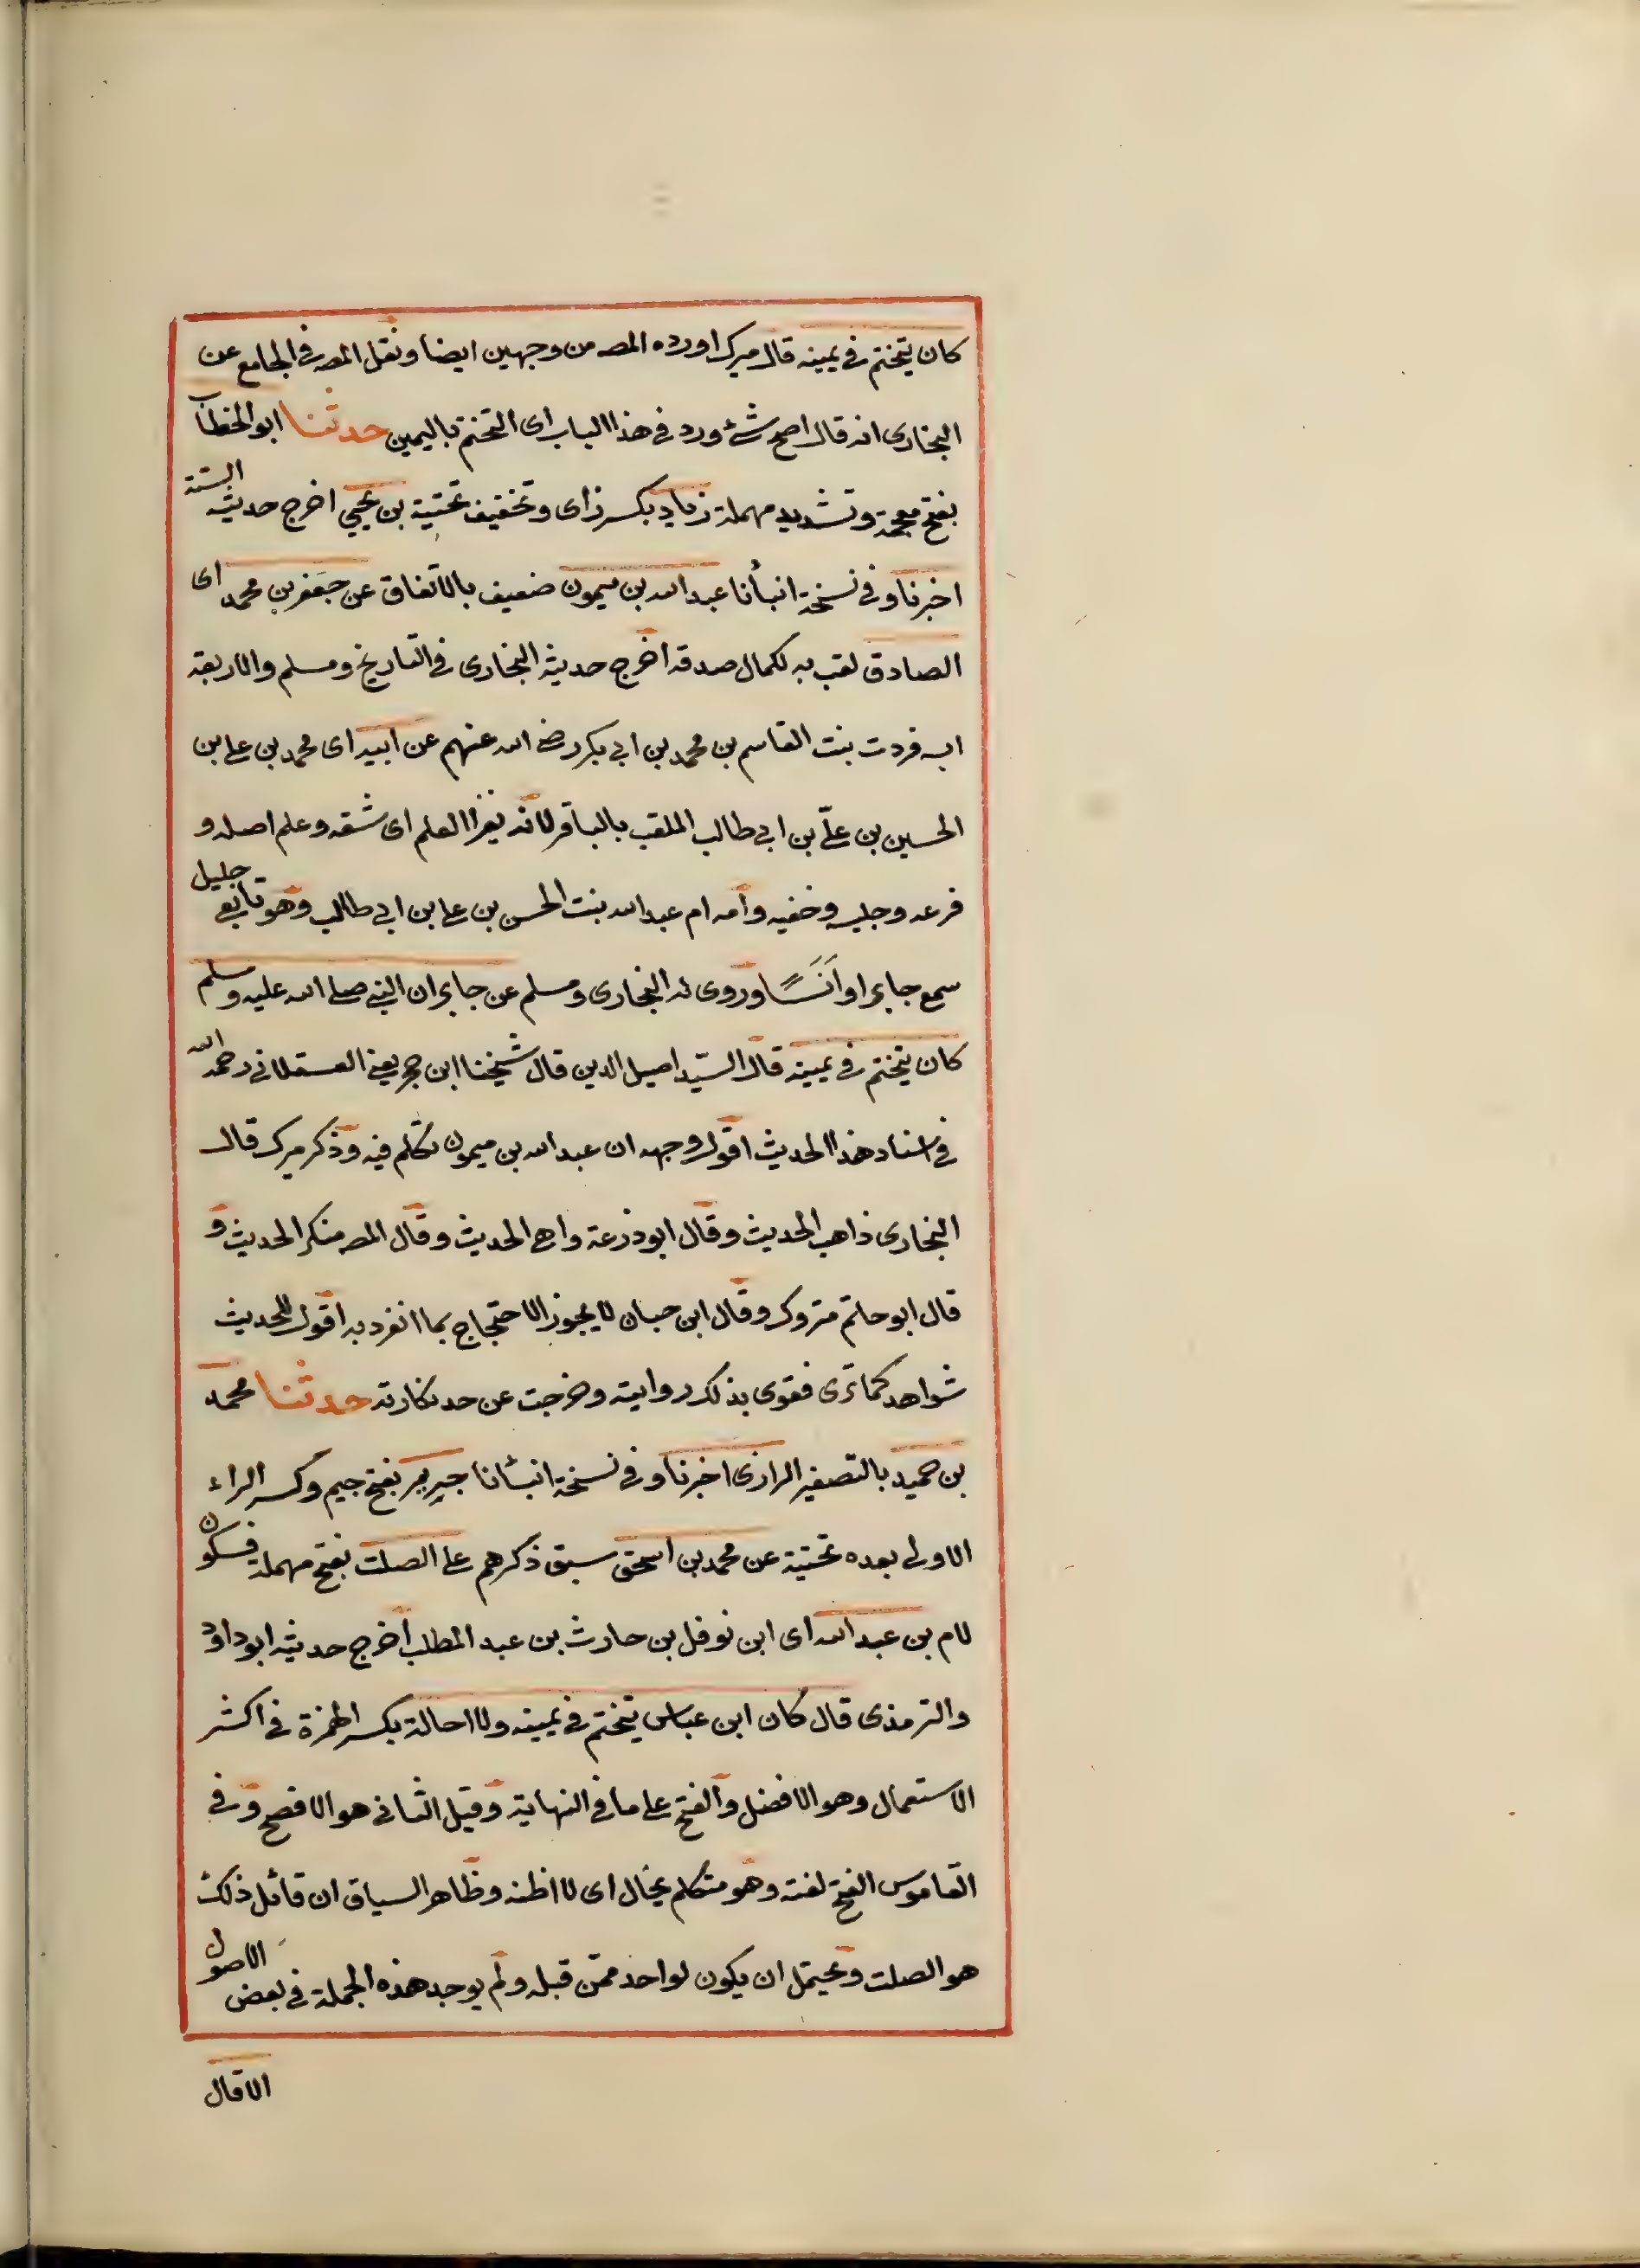 كان يتختم في يمينه قال ميرك اورده المصـ من وجهين ايضا ونقل المصـ في الجامع عن
البخارى انه قال اصح شئ ورد في هذا الباب اى التختم باليمين حدثنا ابو الخطاب
بفتح معجمة وتشديد مهملة زياد بكسر زاى وتخفيف تحتية بن يحيى اخرج حديثه الستة
اخبرنا وفي نسخة انبأنا عبد الله بن ميمون ضعيف بالاتفاق عن جعفر بن محمد اى
الصادق لقب به لكمال صدقه اخرج حديثه البخارى في التاريخ ومسلم والاربعة
امه فردت بنت القاسم بن محمد بن ابي بكر رضي الله عنهم عن ابيه اى محمد بن علي بن
الحسين بن عليّ بن ابي طالب الملقب بالباقر لانه بقر العلم اى شقه وعلم اصله و
فرعه وجليه وخفيه وامه ام عبد الله بنت الحسن بن علي بن ابي طالب وهو تابعي جليل
سمع جابرا وانَسًا وروى له البخارى ومسلم عن جابر ان النبي صلى الله عليه وسلم
كان يتختم في يمينه قال السيّد اصيل الدين قال شيخنا ابن حجر يعني العسقلاني رحمه الله
في اسناد هذا الحديث اقول وجهه ان عبد الله بن ميمون تكلم فيه وذكر ميرك قال
البخارى ذاهب الحديث وقال ابو ذرعة واهي الحديث وقال المصـ منكر الحديث و
قال ابو حاتم متروك وقال ابن حبان لا يجوز الاحتجاج بما انفرد به اقول للحديث
شواهد كما ترى فقوى بذلك روايته وخرجت عن حد نكارته حدثنا محمد
بن حميد بالتصغير الرازى اخبرنا وفي نسخة انبئانا جرير بفتح جيم وكسر الراء
الاولى بعده تحتية عن محمد بن اسحق سبق ذكرهم على الصلت بفتح مهملة فسكون
لام بن عبد الله اى ابن نوفل بن حارث بن عبد المطلب اخرج حديثه ابو داود
والترمذى قال كان ابن عباس يتختم في يمينه ولا احاله بكسر الهمزة في اكثر
الاستعمال وهو الافضل والفتح على ما في النهاية وقيل الثاني هو الافصح وفي
القاموس الفتح لغته وهو متكلم يخال اى لا اظنه وظاهر السياق ان قائل ذلك
هو الصلت ويحتمل ان يكون لواحد ممن قبله ولم يوجد هذه الجملة في بعض الاصول
الاقال